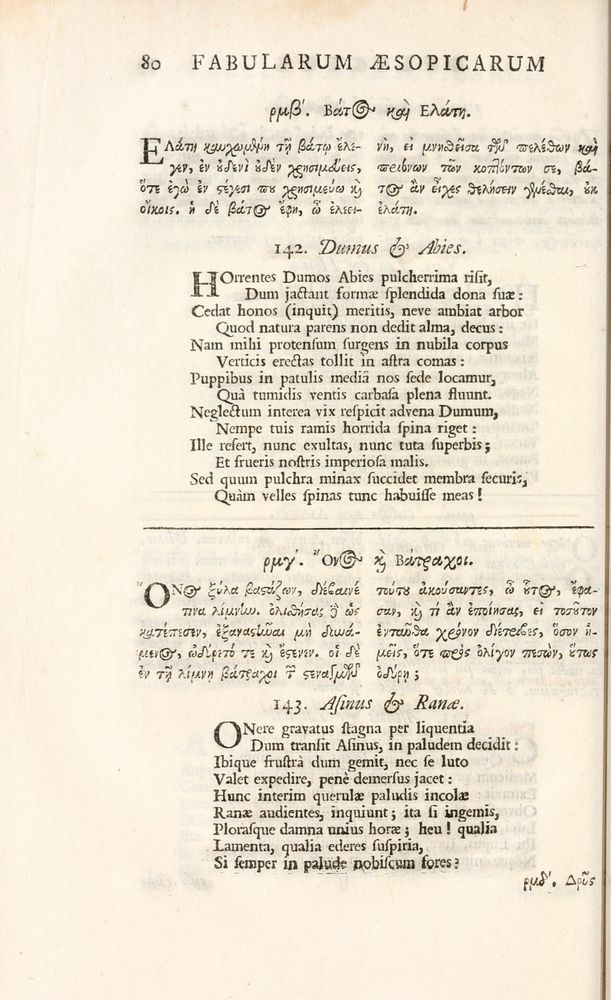 80 FABULARUM ÆSOPICARUM
ρμβʹ. Βάτος καὶ Ελάτη.
ΕΛάτη καυχωμένη τῇ βάτῳ ἔλε-
γεν, ἐν οὐδενὶ οὐδὲν χρησιμεύεις,
ὅτε ἐγὼ ἐν στέγεσί που χρησιμεύω καὶ
οἴκοις. ἡ δὲ βάτος ἔφη, ὦ ἐλεει-
νὴ, εἰ μνηθεῖσα τῶν πελέκων καὶ
πριόνων τῶν κοπτόντων σε, βά-
τος ἂν εἶχες θελήσειν γενέσθαι, ἐκ
ἐλάτη.
142. Dumus & Abies.
HOrrentes Dumos Abies pulcherrima risit,
Dum jactant formæ splendida dona suæ:
Cedat honos (inquit) meritis, neve ambiat arbor
Quod natura parens non dedit alma, decus:
Nam mihi protensum surgens in nubila corpus
Verticis erectas tollit in astra comas:
Puppibus in patulis mediâ nos sede locamur,
Quà tumidis ventis carbasa plena fluunt.
Neglectum interea vix respicit advena Dumum,
Nempe tuis ramis horrida spina riget:
Ille refert, nunc exultas, nunc tuta superbis;
Et frueris nostris imperiosa malis.
Sed quum pulchra minax succidet membra securis,
Quàm velles spinas tunc habuisse meas!
ρμγʹ. Ὄνος καὶ Βάτραχοι.
ὌΝος ξύλα βαστάζων, διέβαινέ
τινα λίμνην. ὀλισθήσας δʹ ὡς
κατέπεσεν, ἐξαναστῆναι μὴ δυνά-
μενος, ὠδύρετό τε καὶ ἔστενεν. οἱ δὲ
ἐν τῇ λίμνῃ βάτραχοι τῶν στεναγμῶν
τούτου ἀκούσαντες, ὦ οὗτος, ἔφα-
σαν, καὶ τί ἂν ἐποίησας, εἰ τοσοῦτον
ἐνταῦθα χρόνον διέτριβες, ὅσον ἡ-
μεῖς, ὅτε πρὸς ὀλίγον πεσὼν, οὕτως
ὀδύρῃ;
143. Asinus & Ranæ.
ONere gravatus stagna per liquentia
Dum transit Asinus, in paludem decidit:
Ibique frustrà dum gemit, nec se luto
Valet expedire, penè demersus jacet:
Hunc interim querulæ paludis incolæ
Ranæ audientes, inquiunt; ita si ingemis,
Plorasque damna unius horæ; heu! qualia
Lamenta, qualia ederes suspiria,
Si semper in palude nobiscum fores?
ρμδʹ. Δρῦς